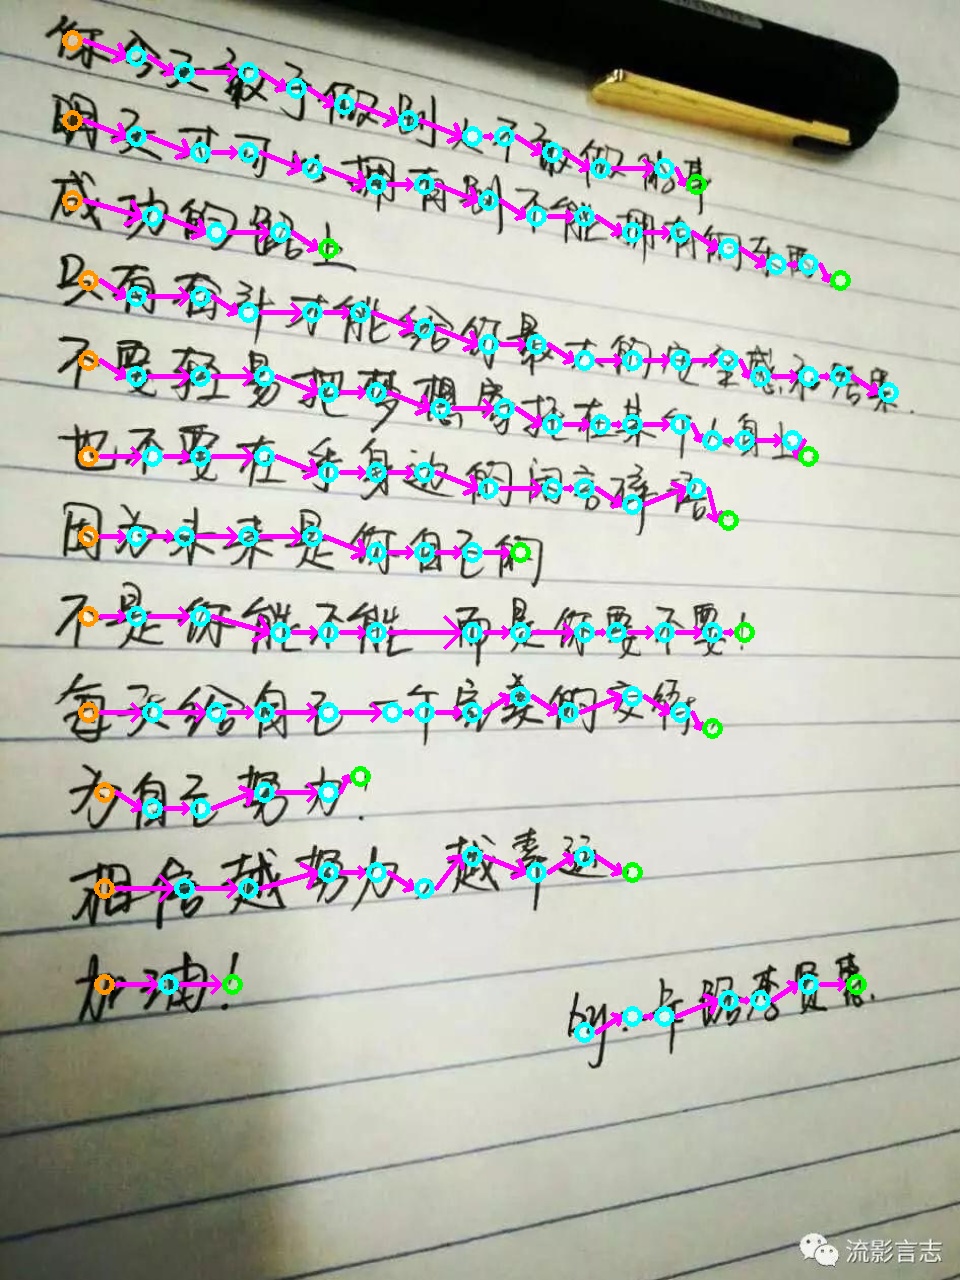 你今天敢于做别人不敢做的事
明天才可以拥有别人不能拥有的东西
成功的路上
只有奋斗才能给你最大的安全感和结果.
不要轻易把梦想寄托在某个人身上
也不要在乎身边的闲言碎语
因为未来是你自己的
不是你能不能 而是你要不要!
每天给自己一个完美的交待
为自己努力.
相信越努力,越幸运
加油!
by.
流影言志